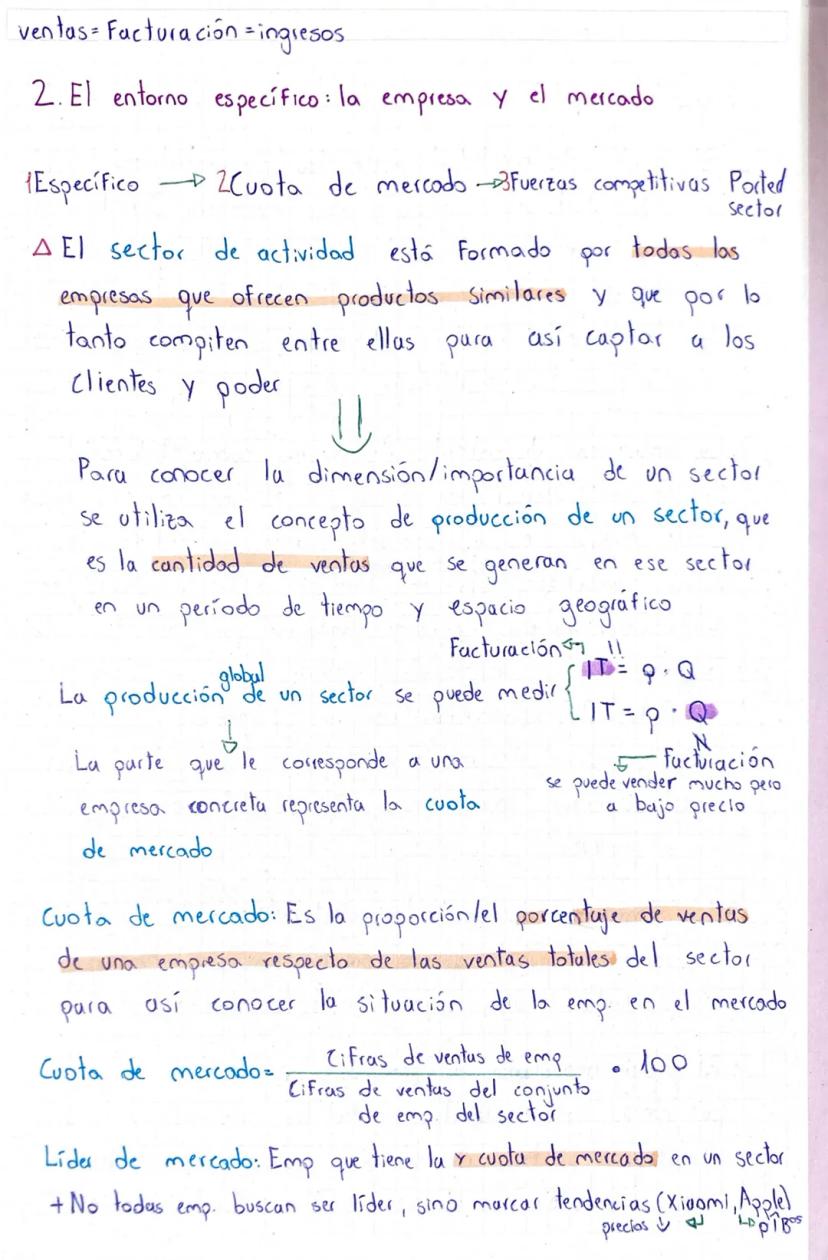 ventas = Facturación = ingresos
2. El entorno específico: la empresa y el mercado
1 Específico → 2 Cuota de mercado → 3 Fuerzas competitivas Ported
sector
△ El sector de actividad está formado por todas las
empresas que ofrecen productos similares y que por lo
tanto compiten entre ellas para así captar a los
clientes y poder
⇓
Para conocer la dimensión/importancia de un sector
se utiliza el concepto de producción de un sector, que
es la cantidad de ventas que se generan en ese sector
en un período de tiempo y espacio geográfico
Facturación
La producción global de un sector se puede medir { IT = p · Q
IT = p · Q
La parte que le corresponde a una
empresa concreta representa la cuota
de mercado
Facturación
se puede vender mucho pero
a bajo precio
Cuota de mercado: Es la proporción/el porcentaje de ventas
de una empresa respecto de las ventas totales del sector
para así conocer la situación de la emp. en el mercado
Cuota de mercado = Cifras de ventas de emp · 100
Cifras de ventas del conjunto
de emp. del sector
Líder de mercado: Emp que tiene la cuota de mercado en un sector
+ No todas emp. buscan ser líder, sino marcar tendencias (Xiaomi, Apple)
precios ↓ ↲ ↳ p↑ Bos